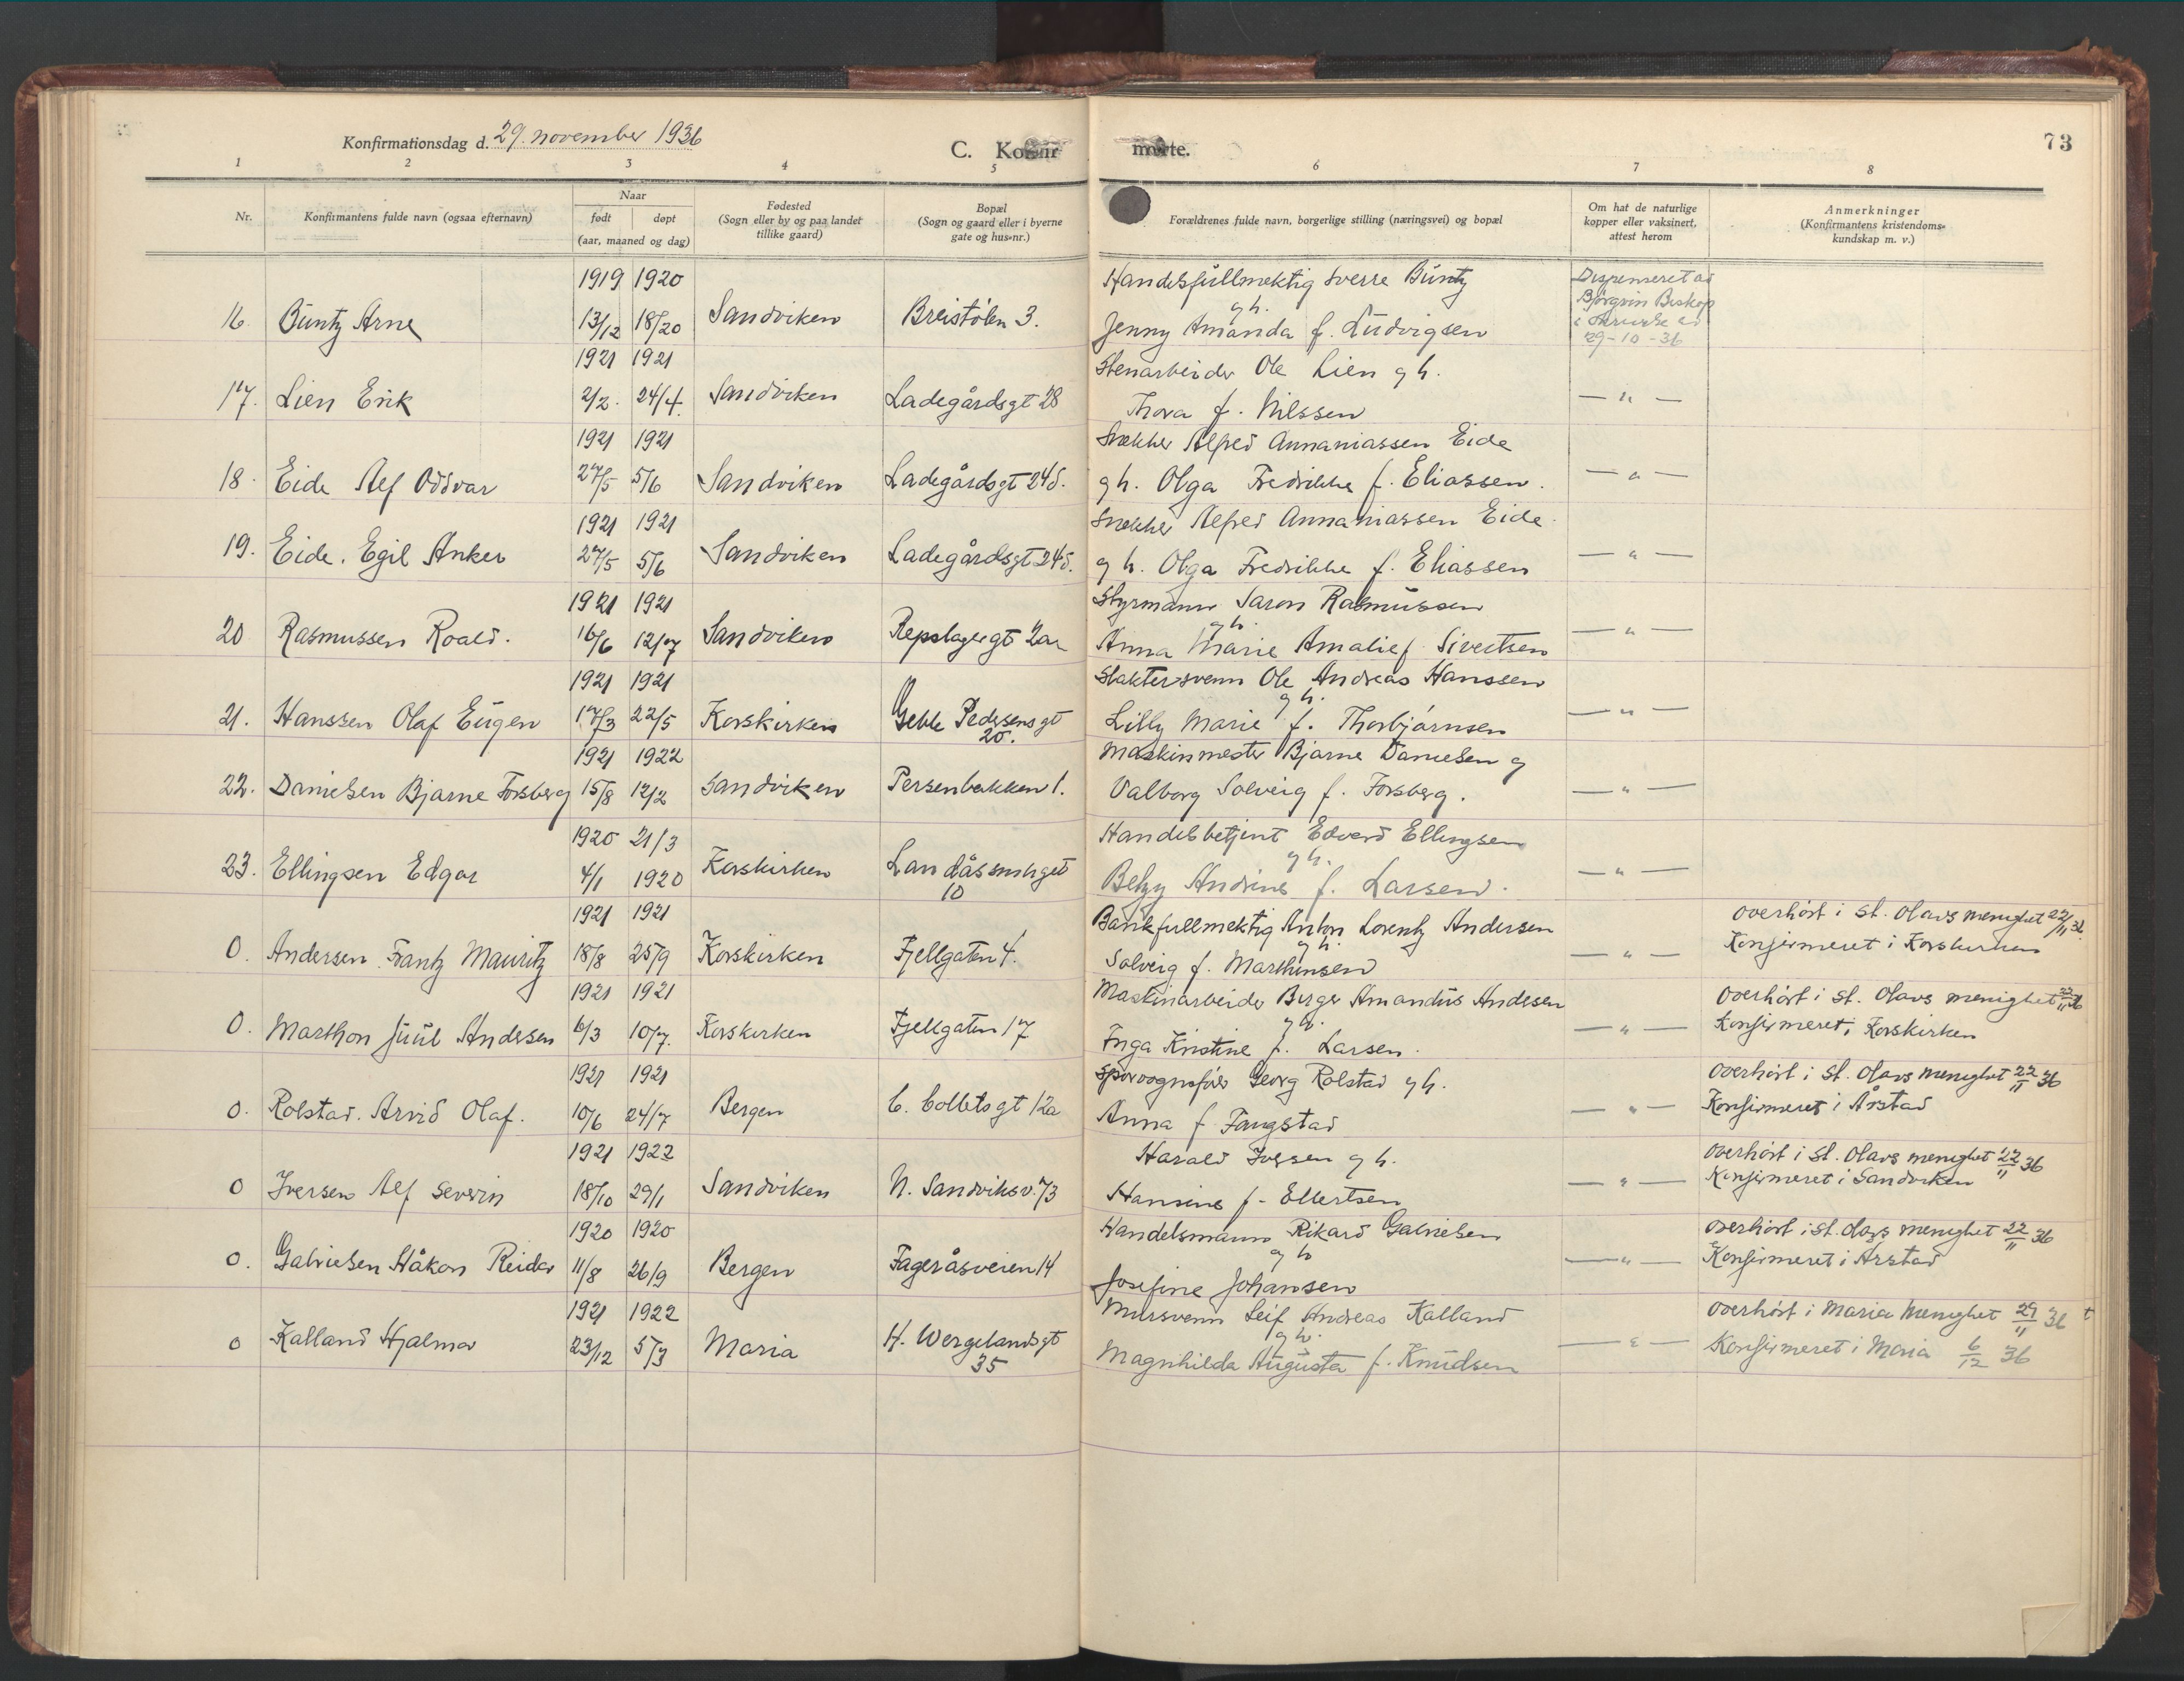 Konfirmationsdag d. 29. november 1936
C. Ko
73
1 2 3 4 5 6 7 8
Nr.
Konfirmantens fulde navn (ogsaa efternavn)
Naar
født døpt
(aar, maaned og dag)
Fødested
(Sogn eller by og paa landet
tillike gaard)
Bopæl
(Sogn og gaard eller i byerne
gate og hus-nr.)
Forældrenes fulde navn, borgerlige stilling (næringsvei) og bopæl
Om hat de naturlige
kopper eller vaksinert,
attest herom
Anmerkninger
(Konfirmantens kristendoms-
kundskap m. v.)
1919 1920 Handelsfullmektig Sverre Buntz Dispenseret av
g h. Bjørgvin Biskop
16. Buntz Arne 13/12 18/20 Sandviken Breistølen 3. Jenny Amanda f. Ludvigsen i skrivelse av
29-10-36
1921 1921 Stenarbeider Ole Lien g h.
17. Lien Erik 2/2. 24/4. Sandviken Ladegårdsgt 28 Thora f. Nilssen — " —
1921 1921 Snekker Alfred Annaniassen Eide
18. Eide Alf Oddvar 27/5 5/6 Sandviken Ladegårdsgt 24 d. g h. Olga Fredrikke f. Eliassen. — " —
1921 1921 Snekker Alfred Annaniassen Eide
19. Eide. Egil Anker 27/5 5/6 Sandviken Ladegårdsgt 24 d. g h. Olga Fredrikke f. Eliassen — " —
1921 1921 Styrmann Saron Rasmussen
g h.
20 Rasmussen Roald. 16/6 12/7 Sandviken Repslagergt 2a Anna Marie Amalie f. Sivertsen — " —
1921 1921 Slaktersvenn Ole Andreas Hanssen
g h.
21. Hanssen Olaf Eugen 17/3 22/5 Korskirken Geble Pedersens gt Lilly Marie f. Thorbjørnsen — " —
20.
1921 1922 Maskinmester Bjarne Danielsen g
22. Danielsen Bjarne Forsberg 15/8 12/2 Sandviken Persenbakken 1. Valborg Solveig f. Forsberg. — " —
1920 21/3 Handelsbetjent Edvard Ellingsen
g h.
23. Ellingsen Edgar 4/1 1920 Korskirken Landåssmuget Betzy Andrine f. Larsen. — " —
10
1921 1921 Bankfullmektig Anton Lorentz Andersen overhørt i St. Olavs menighet 22/11 36.
g h.
0. Andersen. Frantz Mauritz 18/8 25/9 Korskirken Fjellgaten 4. Solveig f. Marthinsen — " — Konfirmeret i Korskirken
1921 1921 Maskinarbeider Birger Amandus Andersen overhørt i St. Olavs menighet 22/11 36
g h.
0. Marthon Juul Andersen 6/3 10/7. Korskirken Fjellgaten 17 Inga Kristine f. Larsen. — " — Konfirmeret i Korskirken
1921 1921 Sporvognsfører Georg Rolstad g h. overhørt i St. Olavs menighet 22/11 36
0. Rolstad. Arvid Olaf. 10/6 24/7 Bergen C. Colletsgt 12a Anna f. Fangstad — " — Konfirmeret i Årstad
1921 1922 Harald Iversen g h. overhørt i St. Olavs menighet 22/11 36
0 Iversen Alf Severin 18/10 29/1 Sandviken N. Sandviksv. 73 Hansine f. Ellertsen — " — Konfirmeret i Sandviken
1920 1920 Handelsmann Rikard Gabrielsen overhørt i St. Olavs menighet 22/11 36
g h
0. Gabrielsen Håkon Reidar 11/8 26/9 Bergen Fageråsveien 14 Josefine Johansen — " — Konfirmeret i Årstad
1921 1922 Mursvenn Leif Andreas Kalland overhørt i Maria Menighet 29/11 36
g h.
0 Kalland Hjalmar 23/12 5/3 Maria H. Wergelandsgt Magnhilda Augusta f. Knudsen — " — Konfirmeret i Maria 6/12 36
35